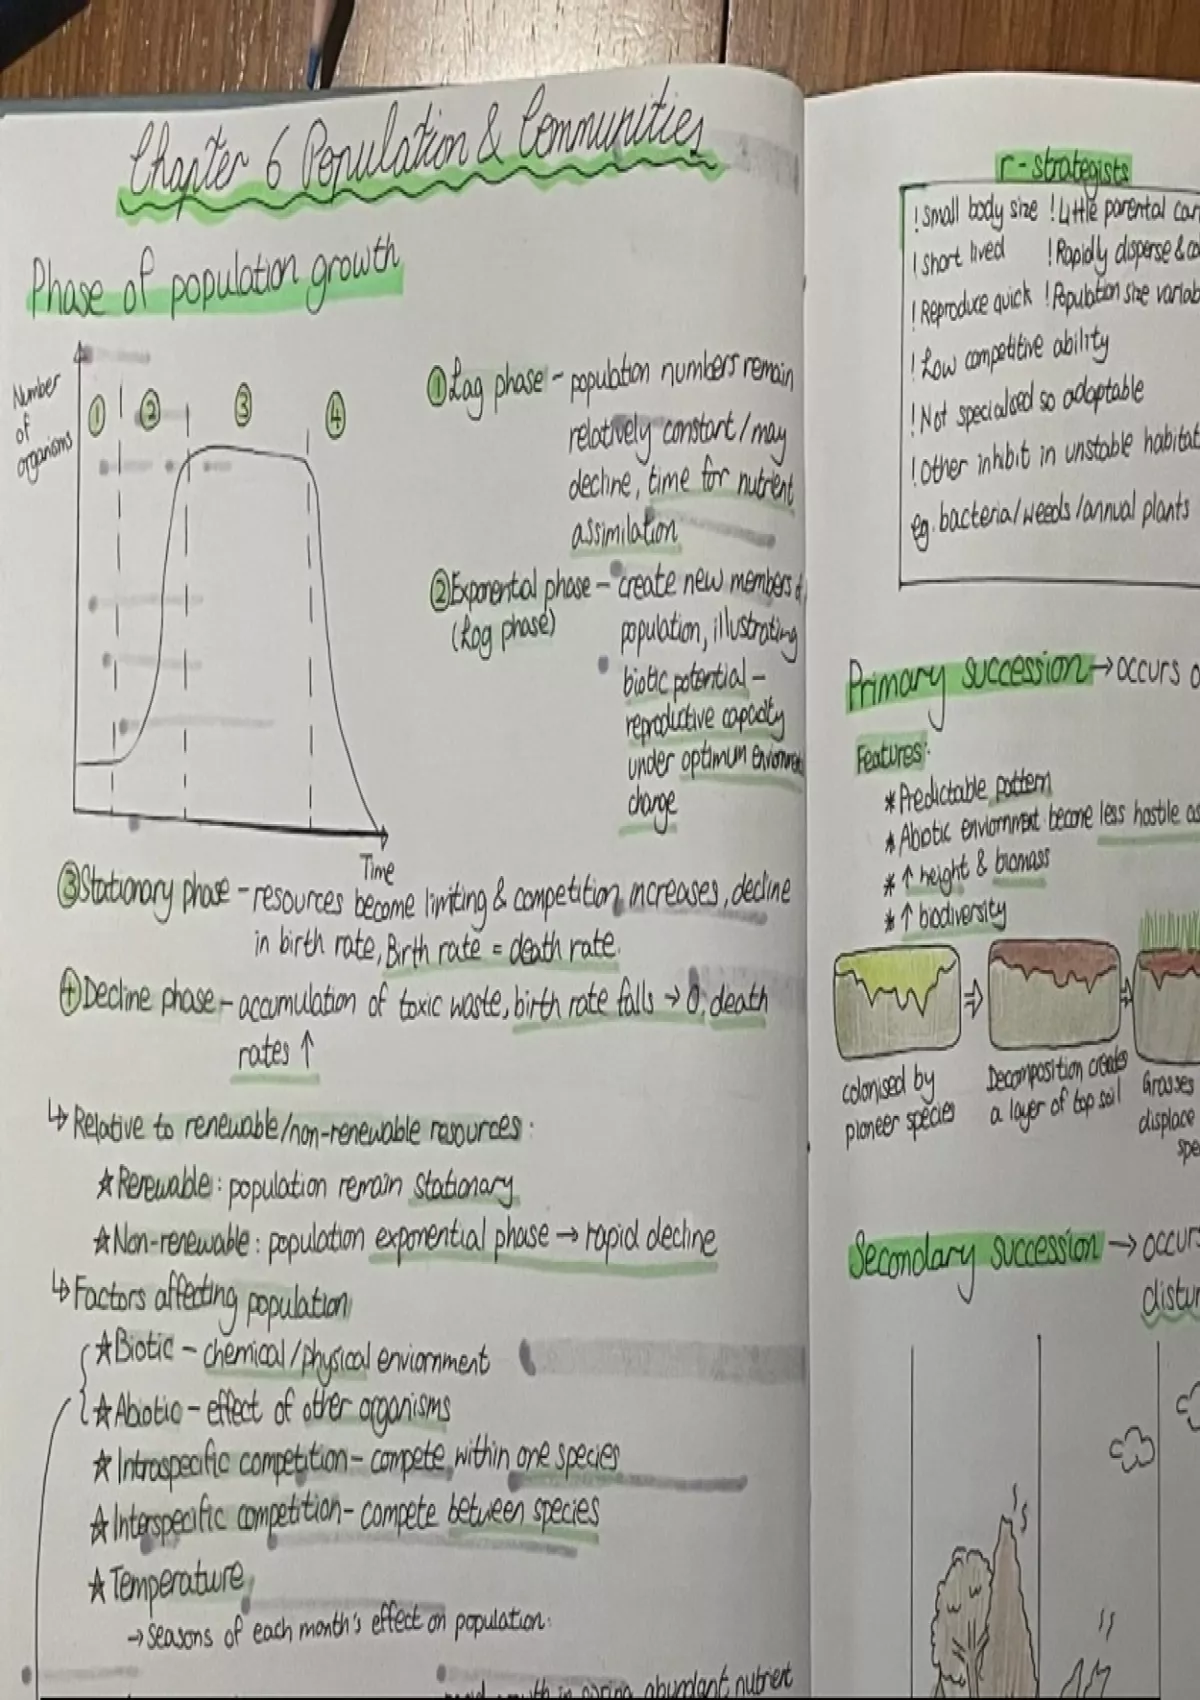 Chapter 6 Population & Communities
Phase of population growth
Number
of
organisms
① ② ③ ④
Time
①Lag phase - population numbers remain
relatively constant/may
decline, time for nutrient
assimilation
②Exponental phase - create new members
(Log phase)
population, illustrating
biotic potential -
reproductive capacity
under optimum
change
③Stationary phase - resources become limiting & competition increases, decline
in birth rate, Birth rate = death rate.
④Decline phase - accumulation of toxic waste, birth rate falls → 0, death
rates ↑
↳ Relative to renewable/non-renewable resources:
☆Renewable: population remain stationary
☆Non-renewable: population exponential phase → rapid decline
↳ Factors affecting population
☆Biotic - chemical/physical enviornment
☆Abiotic - effect of other organisms
☆Intraspecific competition - compete within one species
☆Interspecific competition - compete between species
☆Temperature
→ Seasons of each month's effect on population:
in spring, abundant nutrient
r-strategists
! Small body size ! Little parental
! Short lived ! Rapidly disperse &
! Reproduce quick ! Population size
! Low competitive ability
! Not specialised so adaptable
! Other inhibit in unstable
eg. bacteria/weeds/annual plants
Primary succession → occurs
Features:
* Predictable pattern
* Abiotic enviornment become less hostile as
* ↑ height & biomass
* ↑ biodiversity
colonised by
pioneer species
Decomposition creates
a layer of top soil
Grasses
displace
Secondary succession →